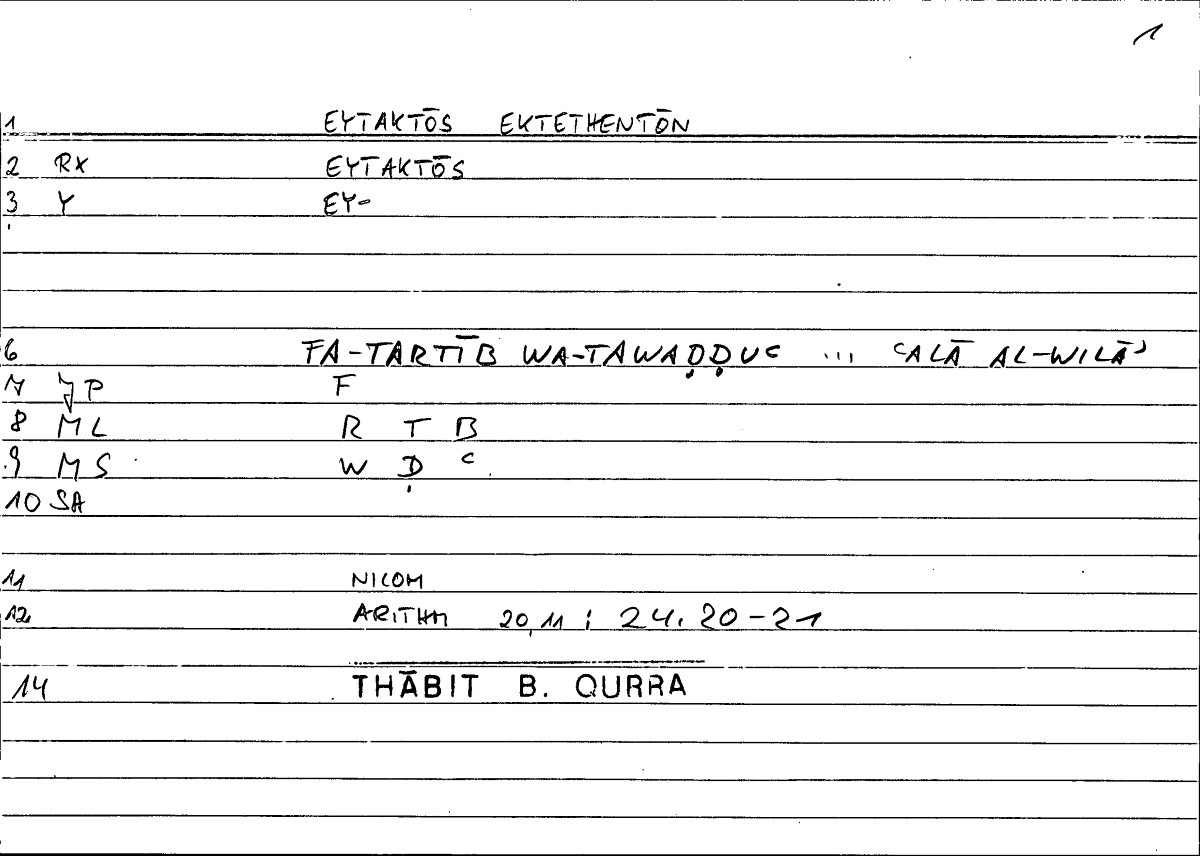 1
1 EYTAKTŌS EKTETHENTŌN
2 RX EYTAKTŌS
3 Y EY-
6 FA-TARTĪB WA-TAWAḌḌUʿ ... ʿALĀ AL-WILĀʾ
7 JP F
8 ML R T B
9 MS W Ḍ ʿ
10 SA
11 NICOM
12 ARITHM 20,11 ; 24.20-21
14 THĀBIT B. QURRA